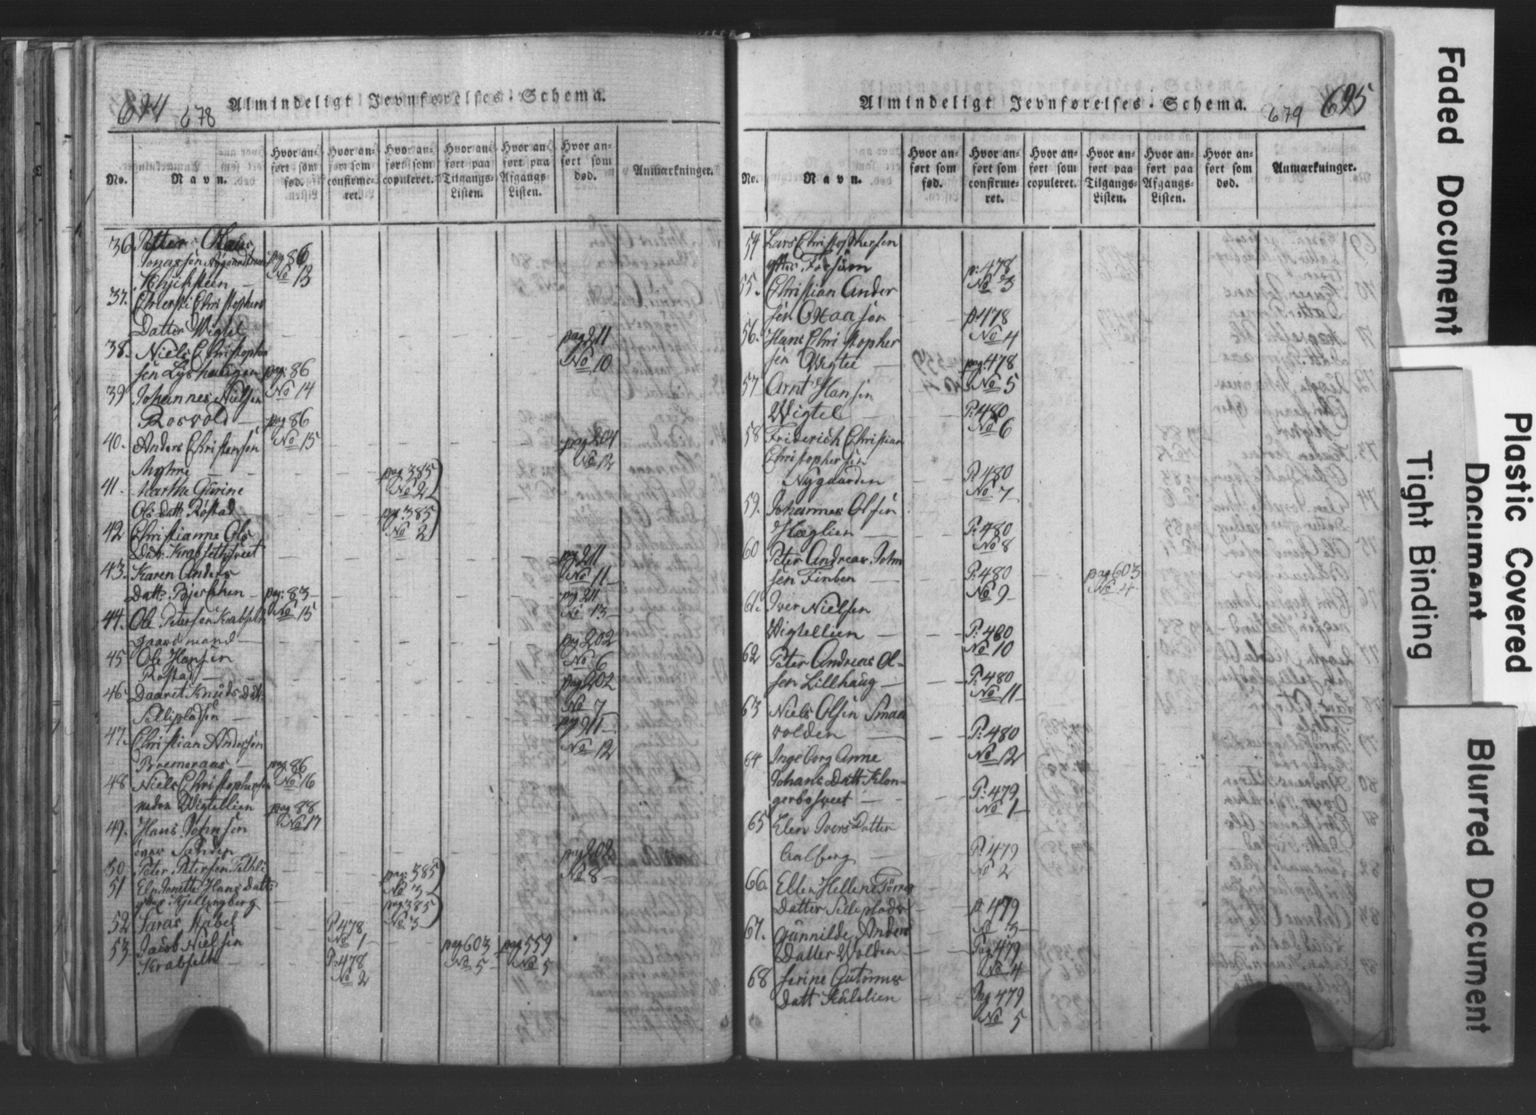 694 678 Almindeligt Jevnførelses-Schema.
No.
Navn.
Hvor an-
ført som
fød.
Hvor an-
ført som
confirme-
ret.
Hvor an-
ført som
copuleret.
Hvor an-
ført paa
Tilgangs-
Listen.
Hvor an-
ført paa
Afgangs-
Listen.
Hvor an-
ført som
død.
Anmærkninger.
36. Petter Olaus
pag 86
No 13
37.
Datter Wigtel
pag 211
No 10
38. Niels Christopher
sen pag: 86
No 14
39 Johannes Nielsen
Rosvold pag 86
No 15
40. Anders Christensen
pag 201
No 12
pag 385
No 2
41. Martha
Ols datt Røstad pag: 385
No 2
42 Christianne Ols
Dat. pag 211
No 11
43. Karen Anders
Datt. pag: 83
No 15
pag 211
No 13
44. Ole Petersen Krabseth
gaardmand pag 202
No 6
45 Ole Hansen
Røstad pag 202
No 7
46. Daaret Knuds dat.
pag 211
No 12
47. Christian Andersen
pag: 86
No 16
48. Niels Christophersen
neden Wigtellien pag 88
No 17
49. Hans Johnsen
pag 202
No 8
50. Peter Petersen
pag: 385
No 3
51 Hans Datt
Kjellingberg pag 385
No 3
52. P. 478
No 1
53. Jacob Nielsen
Krabseth P. 478
No 2
pag 603
No 5
pag 559
No 5
Almindeligt Jevnførelses-Schema. 679 695
No.
Navn.
Hvor an-
ført som
fød.
Hvor an-
ført som
confirme-
ret.
Hvor an-
ført som
copuleret.
Hvor an-
ført paa
Tilgangs-
Listen.
Hvor an-
ført paa
Afgangs-
Listen.
Hvor an-
ført som
død.
Anmærkninger.
54 Lars Christophersen
p: 478
No 3
55. Christian Ander
sen p 478
No 4
56. Hans Christopher
sen Wigtel pag: 478
No 5
57 Arnt Hansen
Wigtel P: 480
No 6
58 Friderich Christian
Christophersen
Nygaarden P. 480
No 7
59. Johannes Olsen
Haglien P. 480
No 8
60 Peter Andreas John
sen Finben P. 480
No 9
pag 603
No 4
61. Iver Nielsen
Wigtellien P. 480
No 10
62 Peter Andreas Ol-
sen Lillhaug P. 480
No 11
63 Niels Olsen Smaa
volden P: 480
No 12
64 Ingeborg Anne
Johans Datt. Klon-
gerbosveet P: 479
No 1
65 Elen Ivers Datter
Aalberg P. 479
No 2
66. Ellen Hellene
Datter p: 479
No 3
67. Gunnilde Anders
Datter Wolden Pag 479
No 4
68 Serine Guttorms
Datt Pag 479
No 5
Faded Document
Plastic Covered
Document
Tight Binding
Blurred Document